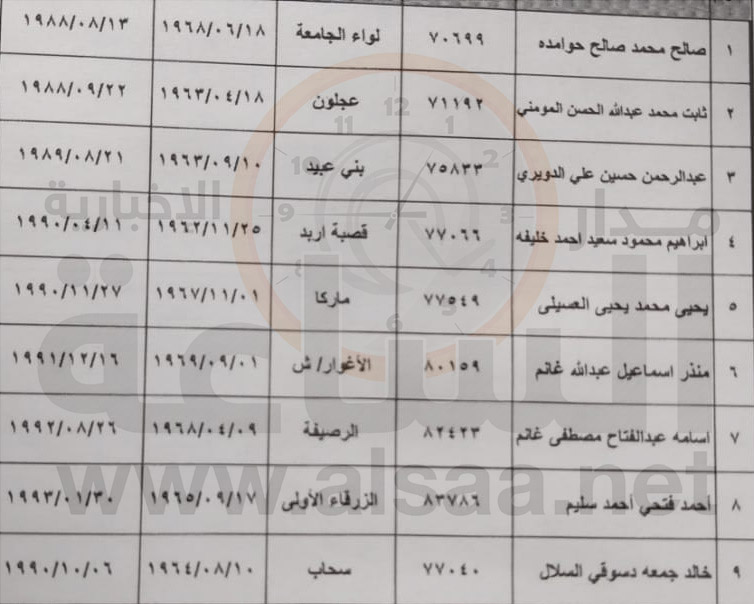 ١ صالح محمد صالح حوامده ٧٠٦٩٩ لواء الجامعة ١٩٦٨/٠٦/١٨ ١٩٨٨/٠٨/١٣
٢ ثابت محمد عبدالله الحسن المومني ٧١١٩٢ عجلون ١٩٦٣/٠٤/١٨ ١٩٨٨/٠٩/٢٢
٣ عبدالرحمن حسين علي الدويري ٧٥٨٣٣ بني عبيد ١٩٦٣/٠٩/١٠ ١٩٨٩/٠٨/٢١
٤ ابراهيم محمود سعيد احمد خليفه ٧٧٠٦٦ قصبة اربد ١٩٦٢/١١/٢٥ ١٩٩٠/٠٤/١١
٥ يحيى محمد يحيى العسيلى ٧٧٥٤٩ ماركا ١٩٦٧/١١/٠١ ١٩٩٠/١١/٢٧
٦ منذر اسماعيل عبدالله غانم ٨٠١٥٩ الأغوار/ ش ١٩٦٩/٠٩/٠١ ١٩٩١/١٢/١٦
٧ اسامه عبدالفتاح مصطفى غانم ٨٢٤٢٣ الرصيفة ١٩٦٨/٠٤/٠٩ ١٩٩٢/٠٨/٢٦
٨ أحمد فتحي أحمد سليم ٨٣٧٨٦ الزرقاء الأولى ١٩٦٥/٠٩/١٧ ١٩٩٣/٠١/٣٠
٩ خالد جمعه دسوقي السلال ٧٧٠٤٠ سحاب ١٩٦٤/٠٨/١٠ ١٩٩٠/١٠/٠٦
مدار الساعة الاخبارية
www.alsaa.net
12
1
2
3
4
5
6
9
10
11